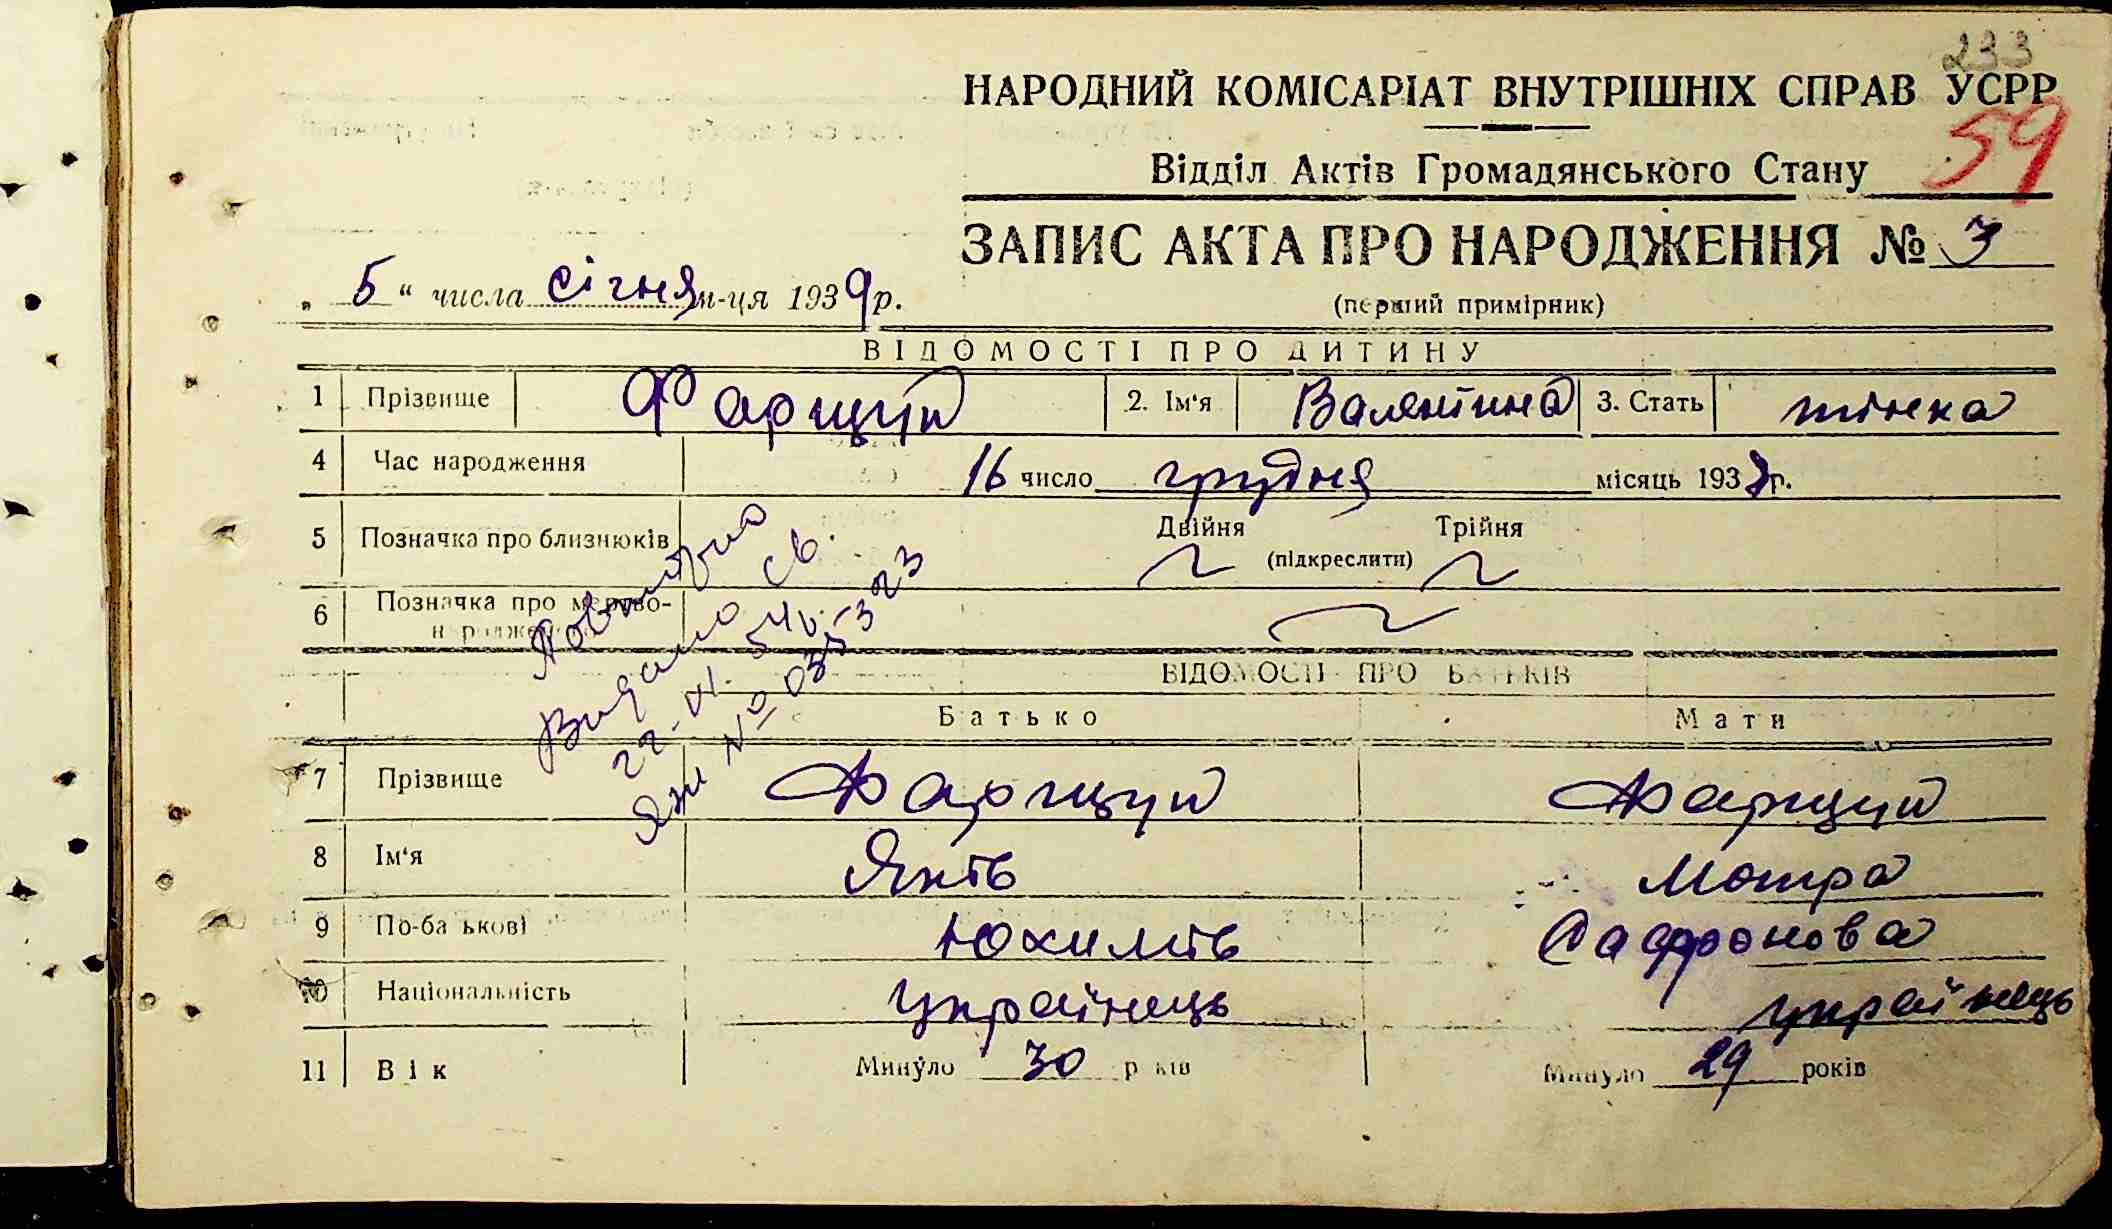 233
НАРОДНИЙ КОМІСАРІАТ ВНУТРІШНІХ СПРАВ УСРР
59
Відділ Актів Громадянського Стану
ЗАПИС АКТА ПРО НАРОДЖЕННЯ № 3
„ 5 “ числа січня м-ця 1939 р.
(перший примірник)
ВІДОМОСТІ ПРО ДИТИНУ
1 Прізвище Фарщун 2. Ім'я Валентина 3. Стать жінка
4 Час народження 16 число грудня місяць 1938 р.
5 Позначка про близнюків Двійня Трійня
(підкреслити)
6 Позначка про мертво-
народжених
Повторно
Видано св.
22-VI. 54р.
ЯЖ № 035323
ВІДОМОСТІ ПРО БАТЬКІВ
Батько Мати
7 Прізвище Фарщун Фарщун
8 Ім'я Яків Мотра
9 По-ба ькові Юхимів Сафронова
10 Національність українець українець
11 Вік Минуло 30 років Минуло 29 років